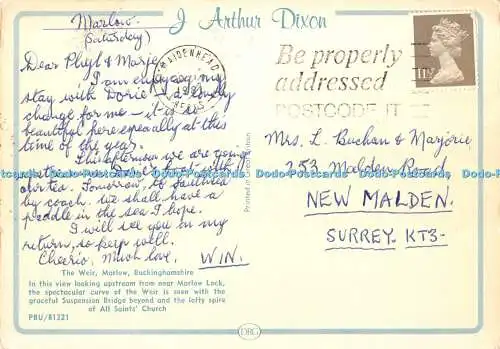 Marlow.
(Saturday)
J Arthur Dixon
Dear Phyl & Marje
I am enjoying my
stay with Doric - a lovely
change for me - it is so
beautiful here especially at this
time of the year.
This afternoon we are going
our tea. Tomorrow, to
by coach. we shall have a
paddle in the sea I hope.
I will see you on my
return, so keep well.
Cheerio, Much love. WIN.
The Weir, Marlow, Buckinghamshire
In this view looking upstream from near Marlow Lock,
the spectacular curve of the Weir is seen with the
graceful Suspension Bridge beyond and the lofty spire
of All Saints' Church
PBU/81221
Printed in Great Britain
MAIDENHEAD
BERKS
Be properly
addressed
POSTCODE IT
11½
Mrs. L. Buchan & Marjorie
253 Malden Road
NEW MALDEN.
SURREY. KT3-
DRG
Dodo-Postcards Dodo-Postcards Dodo-Postcards Dodo-Postcards